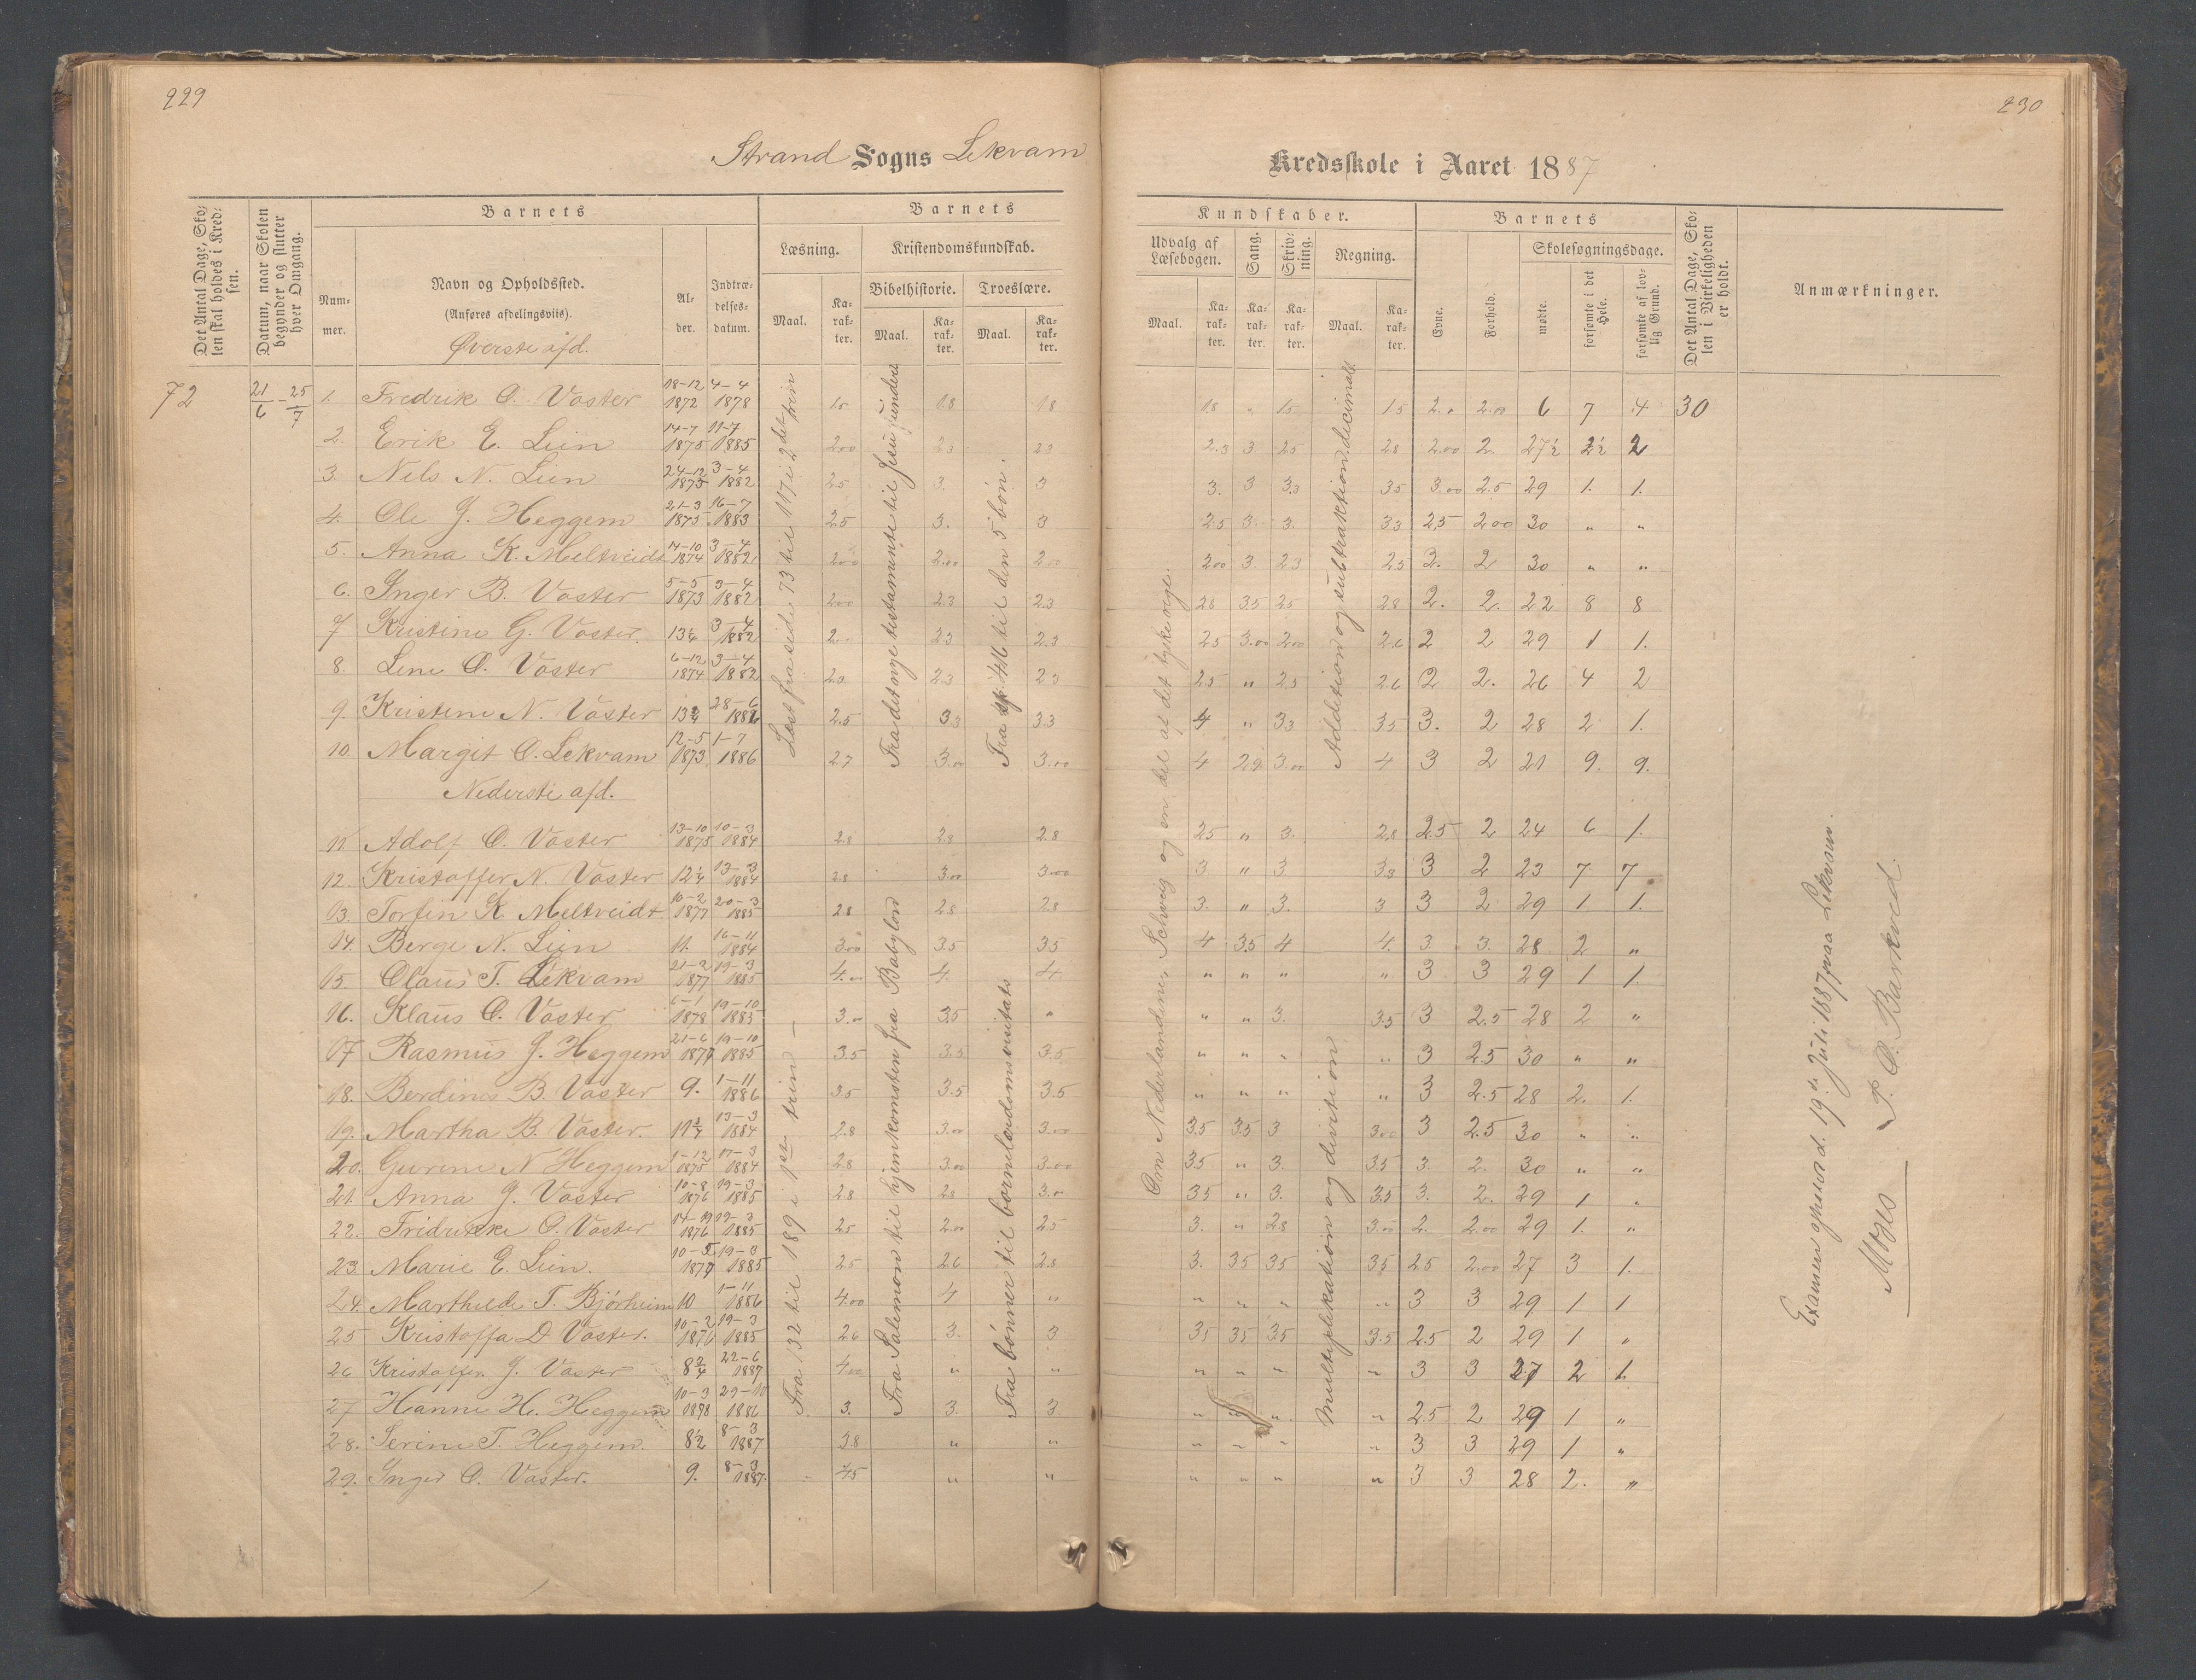 229
230
Strand Sogns Lekvam Kredsskole i Aaret 1887
Det Antal Dage, Skolen skal holdes i Kredsen.
Datum, naar Skolen begynder og slutter hver Omgang.
Barnets
Nummer.
Navn og Opholdssted.
(Anføres afdelingsviis).
Øverste afd.
Alder.
Indtrædelsesdatum.
Barnets Kundskaber.
Læsning.
Maal.
Karakter.
Kristendomskundskab.
Bibelhistorie.
Maal.
Karakter.
Troeslære.
Maal.
Karakter.
Udvalg af Læsebogen.
Maal.
Karakter.
Sang.
Karakter.
Skrivning.
Karakter.
Regning.
Maal.
Karakter.
Barnets
Evne.
Forhold.
Skolesøgningsdage.
mødte.
forsømte i det Hele.
forsømte af lovlig Grund.
Det Antal Dage, Skolen i Virkeligheden er holdt.
Anmærkninger.
72 21/6 - 25/7
1. Fredrik O. Vaster 18-12 1872 4-4 1878 1.5 1.8 1.8 1.8 " 1.5 1.5 2.. 2.00 6 7 4 30
2. Erik E. Lien 14-7 1875 11-7 1885 2.00 2.3 2.3 2.3 3 2.5 2.8 2.00 2. 27½ 2½ 2
3. Nels N. Lien 24-12 1873 3-4 1882 2.5 3. 3 3. 3 3.3 3.5 3.00 2.5 29 1. 1.
4. Ole J. Heggem 21-3 1875 16-7 1883 2.5 3. 3 2.5 3. 3. 3.3 2.5 2.00 30 " "
5. Anna K. Meltveidt 14-10 1874 3-4 1882 2.00 2.00 2.00 2.00 3 2.3 2.5 2. 2 30 " "
6. Inger B. Vaster 5-5 1873 3-4 1882 2.00 2.3 2.3 2.8 3.5 2.5 2.8 2. 2. 22 8 8
7 Kristine G. Vaster. 13¼ 3-4 1882 2.. 2.3 2.3 2.5 3.00 2.00 2.6 2 2 29 1 1.
8. Lene O. Vaster 6-12 1874 3-4 1882 2.3 2.3 2.3 2.5 " 2.5 2.6 2 2. 26 4 2
9. Kristine N. Vaster 28-6 1882 2.5 3.3 3.3 4 " 3.3 3.5 3. 2 28 2 1.
10. Margit O. Lekvam 12-5 1873 1-7 1886 2.7 3.00 3.00 4 2.9 3.00 4 3 2 21 9. 9.
Nederste afd.
11 Adolf O. Vaster 13-10 1875 10-3 1884 2.8 2.8 2.8 2.5 " 3. 2.8 2.5 2 24 6 1.
12. Kristoffer N. Vaster 12¼ 13-3 1884 2.8 3.00 3.00 3 " 3 3.3 3 2 23 7 7
13. Torfin K. Meltveidt 10-2 1877 20-3 1885 2.8 2.8 2.8 3. " 3. 3 3 2 29 1 1.
14. Berge N. Lien 11. 16-11 1884 3.00 3.5 3.5 4 3.5 4 4. 3. 3. 28 2 "
15. Olaus T. Lekvam 21-2 1877 19-3 1885 4.00 4. 4 " " " " 3 3 29 1 1.
16. Klaus O. Vaster 6-1 1878 19-10 1885 3.00 3.5 " " " 3. 3.5 3 2.5 28 2 "
17 Rasmus J. Heggem 21-6 1877 19-10 1885 3.5 3.5 3.5 " " " " 3 2.5 30 " "
18. Berdine B. Vaster 9. 1-11 1886 3.5 3.5 3.5 " " " " 3 2.5 28 2. 1.
19. Martha B. Vaster. 11¾ 13-3 1884 2.8 3.00 3.00 3.5 3.5 3 3.00 3 2.5 30 " "
20. Gurine N Heggem 1-12 1875 17-3 1884 2.8 3.00 3.00 3.5 " 3. 3.5 3. 2. 30 " "
21. Anna J. Vaster 10-8 1876 19-3 1885 2.8 2.8 3.00 3.5 " 3. 3.5 3. 2. 29 1 "
22. Fridrikke O. Vaster 1876 19-3 1885 2.5 2.00 2.5 3. " 2.8 3.00 2. 2.00 29 1. "
23. Marie E. Lien. 10-5 1877 19-3 1885 2.5 2.6 2.8 3. 3.5 3.5 3.5 2.5 2.00 27 3 1.
24. Marthilde T. Bjørheim 10 1-11 1886 4.00 4 " " " " " 3 3 29 1 1
25 Kristoffa D Vaster. 10-2 1876 19-3 1885 2.6 3. 3 3.5 3.5 3.5 3.5 2.5 2 29 1 "
26 Kristoffer J. Vaster 8¾ 22-6 1887 4.00 " " " " " " 3 3 27 2 1.
27 Hanne H. Heggem 10-3 1878 29-10 1886 3. 3. 3 " " " " 2.5 2 29 1 "
28. Serine T. Heggem. 8½ 8-3 1887 3.8 " " " " " " 3 3 29 1 "
29. Inger O. Vaster. 9. 8-3 1887 4.5 " " " " " " 3 3 28 2. "
Læst fra side 73 til 117 i 2det trin
Fra det nye testamente til Jesu
Fra sp. 416 til den 5 bøn.
Om Nederlandene, Schweig og en del af det tyske rige.
Addetion og subtraktion decimalb.
Fra 132 til 189 i 1ste trin -
Fra Salemon til hjemkomsten fra Babylon
Fra bønner til barnelærdomsvisitats
Multiplikation og divition
Examen afholdt d. 19de Juli 1887 paa Lekvam.
Moses
T. O. Barkved.